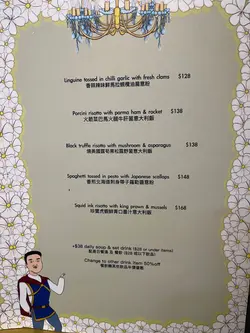 Linguine tossed in chilli garlic with fresh clams $128
香蒜辣椒鮮馬拉蜆欖油扁意粉
Porcini risotto with parma ham & rocket $138
火箭菜巴馬火腿牛肝菌意大利飯
Black truffle risotto with mushroom & asparagus $138
意大利飯
Spaghetti tossed in pesto with Japanese scallops $148
香煎北海道刺身帶子羅勒醬意粉
Squid ink risotto with king prawn & mussels $168
青口墨汁意大利飯
+$38 daily soup & set drink ($28 or under items)
Change to other drink item 50%off